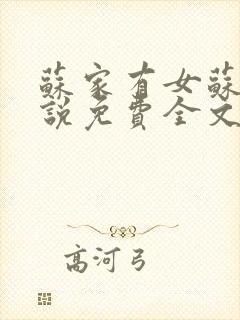 蘇家有女蘇
說免費全文
高河弓